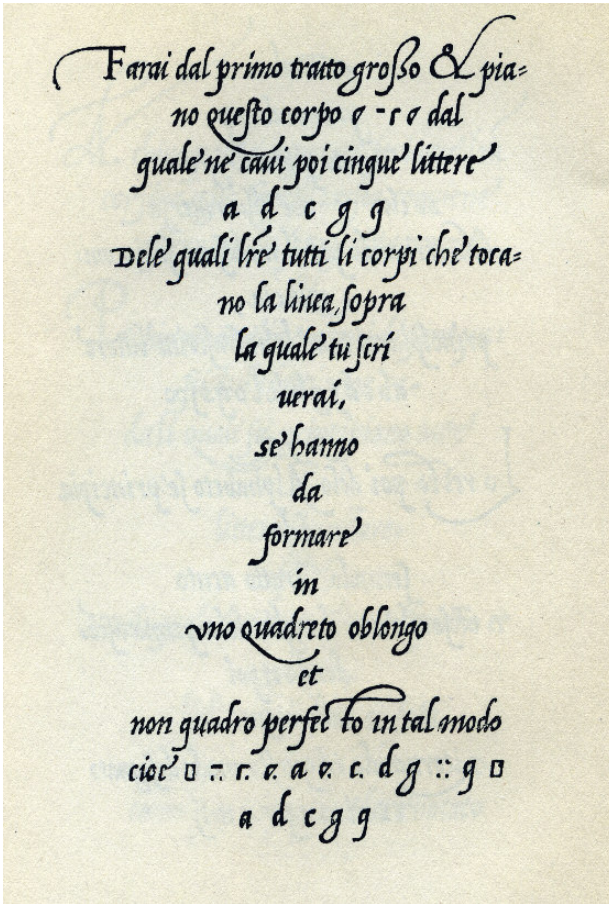 Farai dal primo tratto grosso & pia=
no questo corpo o - r o dal
quale ne cavi poi cinque littere
a d c g q
Dele quali lr̃e tutti li corpi che toca=
no la linea, sopra
la quale tu scri
verai,
se hanno
da
formare
in
vno quadreto oblongo
et
non quadro perfecto in tal modo
cioe
a d c g q